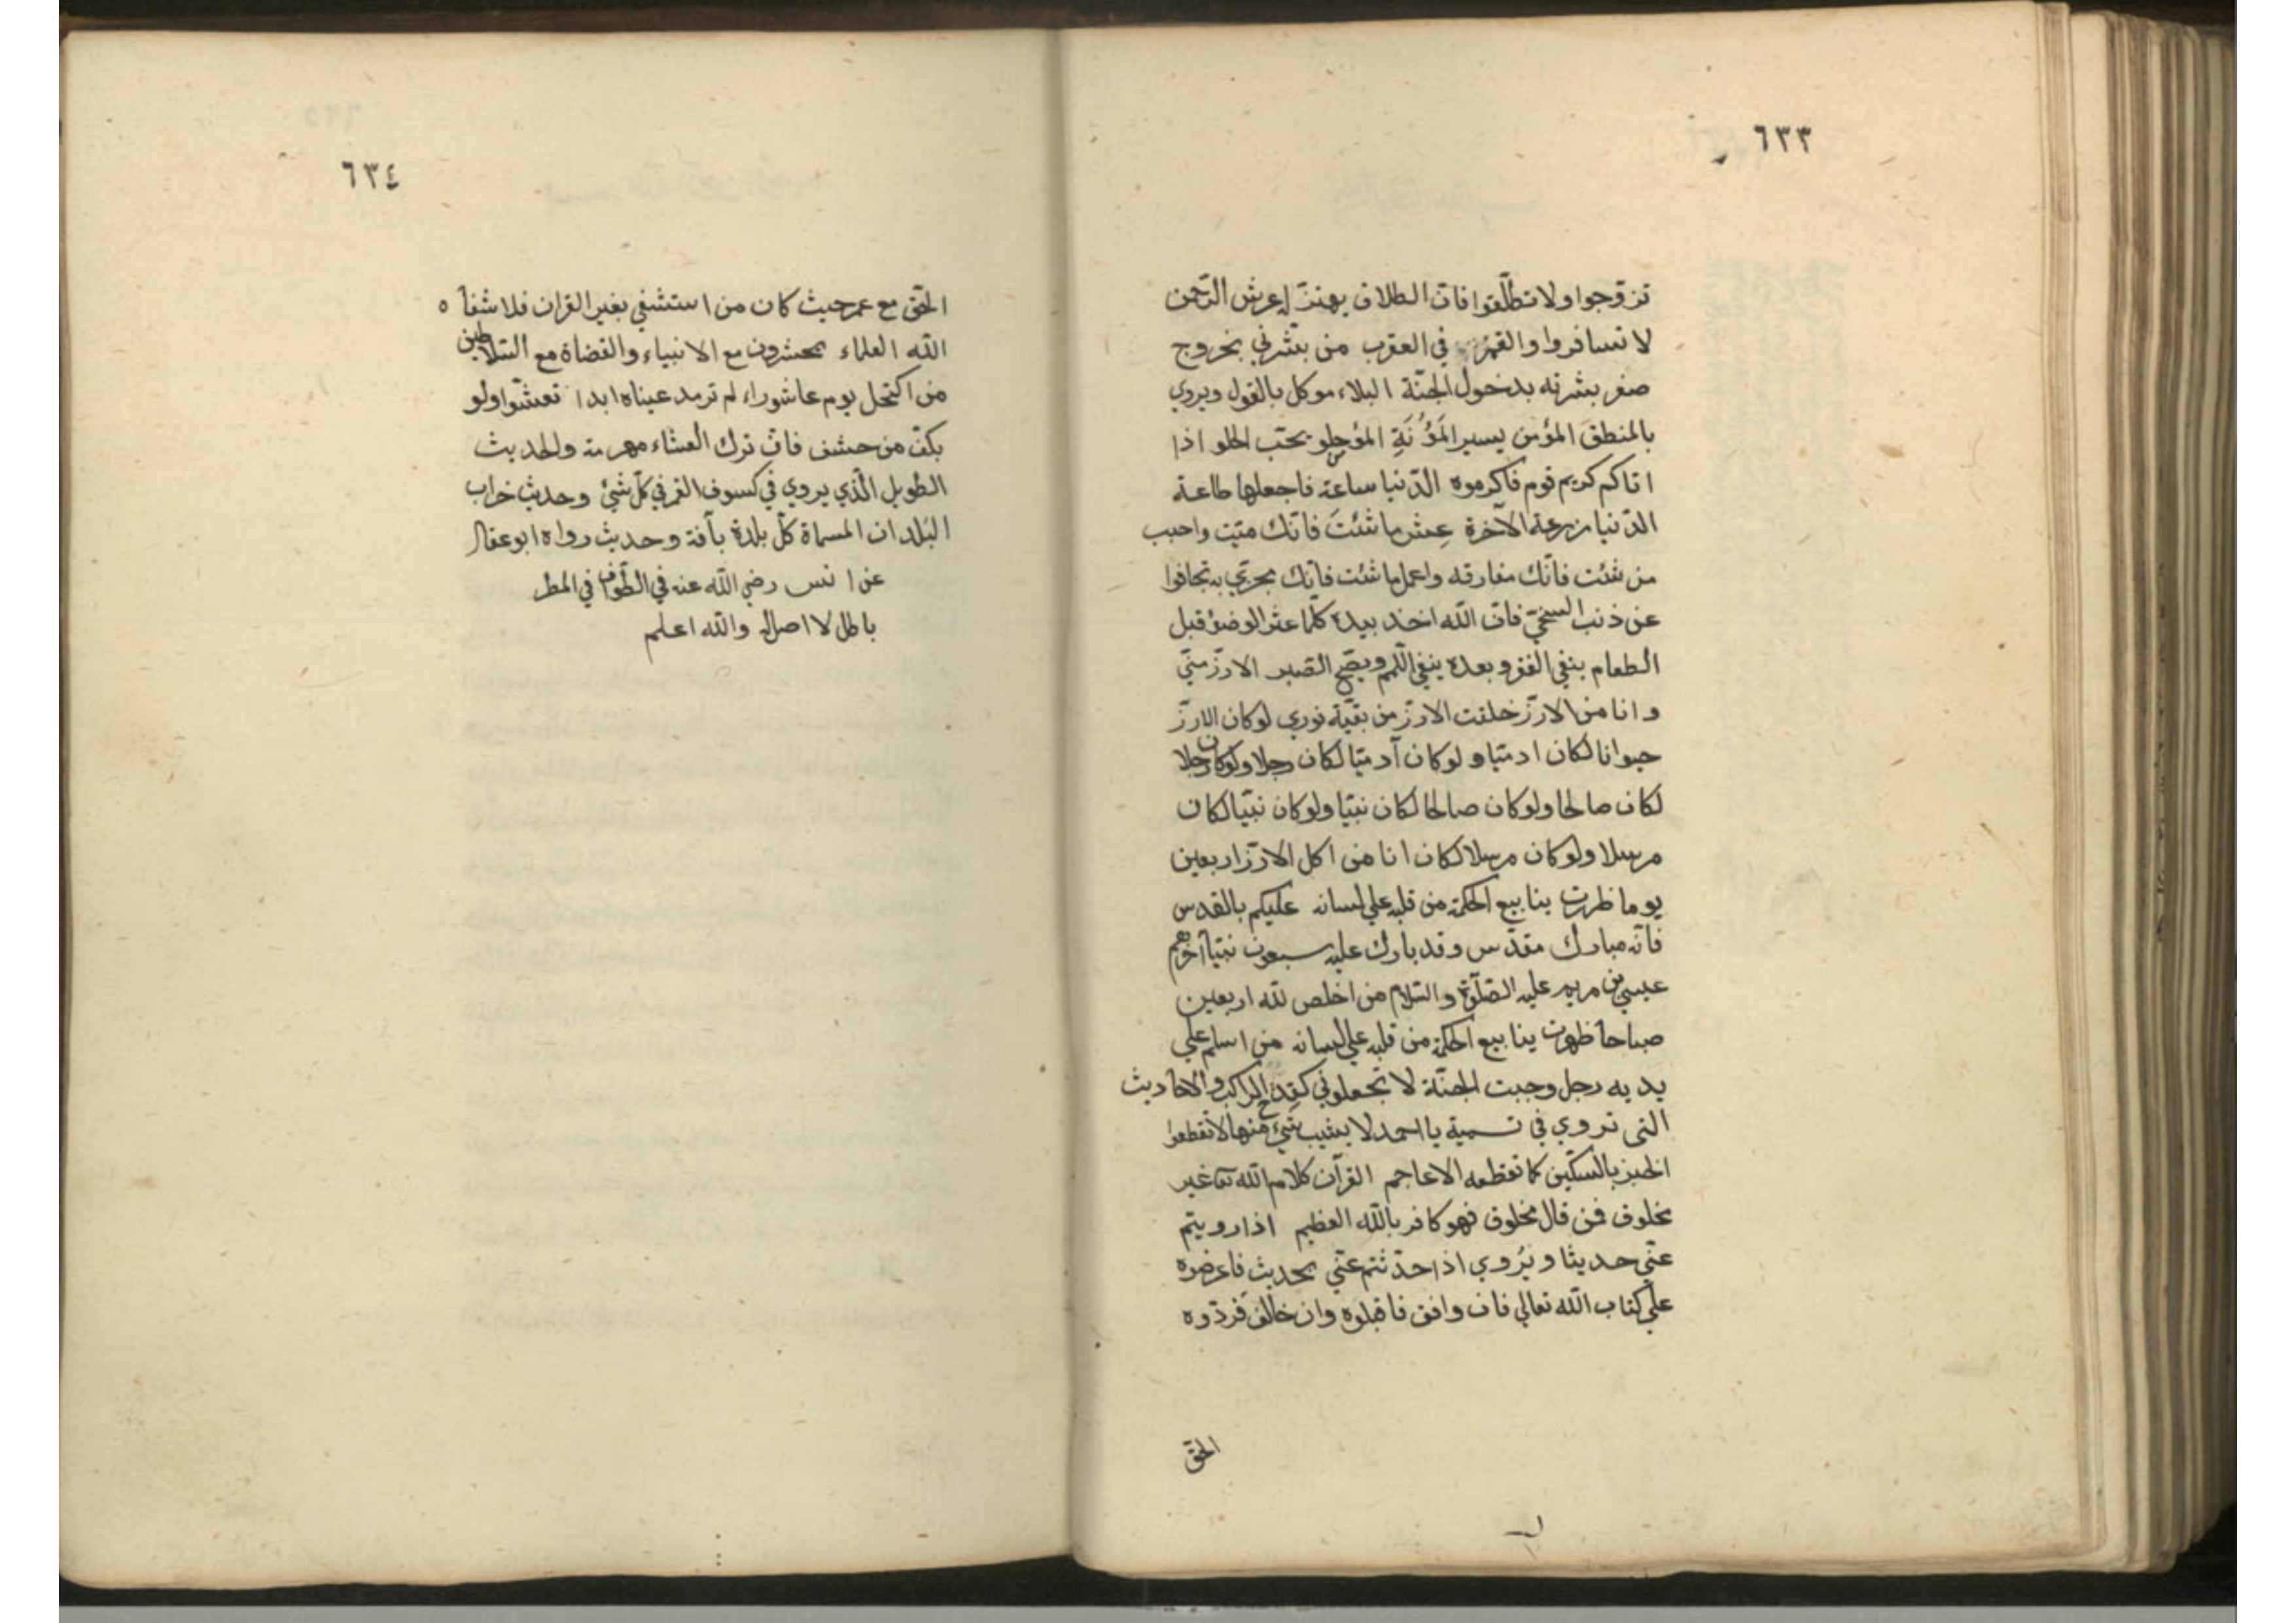 ٦٣٣
تزوجوا ولا تطلّقوا فانّ الطلاق يهتزّ له عرش الرّحمن
لا تسافروا والقمر في العقرب من بشّرني بخروج
صفر بشرته بدخول الجنّة البلاء موكل بالقول ويروي
بالمنطق المؤمن يسير المَؤُنَةِ المؤمن حلو يحبّ الحلو اذا
اتاكم كريم قوم فاكرموه الدّنيا ساعة فاجعلها طاعة
الدّنيا مزرعة الآخرة عِش ما شئتَ فانّك ميّت واحبب
من شئت فانّك مفارقه واعمل ما شئت فانّك مجزي به تجافوا
عن ذنب السخيّ فانّ الله اخذ بيده كلّما عثر الوضوء قبل
الطعام ينفي الفقر وبعده ينفي اللّمم ويصّح البصر الارزّ منّي
وانا من الارزّ خلقت الارزّ من بقيّة نوري لوكان الارزّ
حيوانا لكان ادميّا ولوكان آدميّا لكان رجلا ولوكان رجلا
لكان صالحا ولوكان صالحا لكان نبيّا ولوكان نبيّا لكان
مرسلا ولوكان مرسلا لكان انا من اكل الارزّ اربعين
يوما ظهرت ينابيع الحكمة من قلبه علي لسانه عليكم بالعدس
فانّه مبارك مقدّس وقد بارك عليه سبعون نبيّا آخرهم
عيسي بن مريم عليه الصّلوة والسّلام من اخلص لله اربعين
صباحا ظهرت ينابيع الحكمة من قلبه علي لسانه من اسلم علي
يديه رجل وجبت الجنّة لا تجعلوني كقدح الراكب والاحاديث
التى تروي في تسمية يا احمد لا يثبت شيء منها لا تقطعوا
الخبز بالسكّين كما تقطعه الاعاجم القرآن كلام الله تعا غير
مخلوق فمن قال مخلوق فهو كافر بالله العظيم اذا رويتم
عنّي حديثا ويُروي اذا حدّثتم عنّي بحديث فاعرضوه
علي كتاب الله تعالي فان وافق فاقبلوه وان خالف فردّوه
الحقّ
٦٣٤
الحقّ مع عمر حيث كان من استشفي بغير القران فلا شفاه
الله العلماء يحشرون مع الانبياء والقضاة مع السّلاطين
من اكتحل يوم عاشوراء لم ترمد عيناه ابدا تعشّوا ولو
بكفّ من حشف فانّ ترك العشاء مهرمة والحديث
الطويل الّذي يروي في كسوف القمر في كلّ شيئ وحديث خراب
البلدان المسماة كلّ بلدة بآفة وحديث رواه ابو عقال
عن انس رضي الله عنه في الطّواف في المطر
باطل لا اصل له والله اعلم